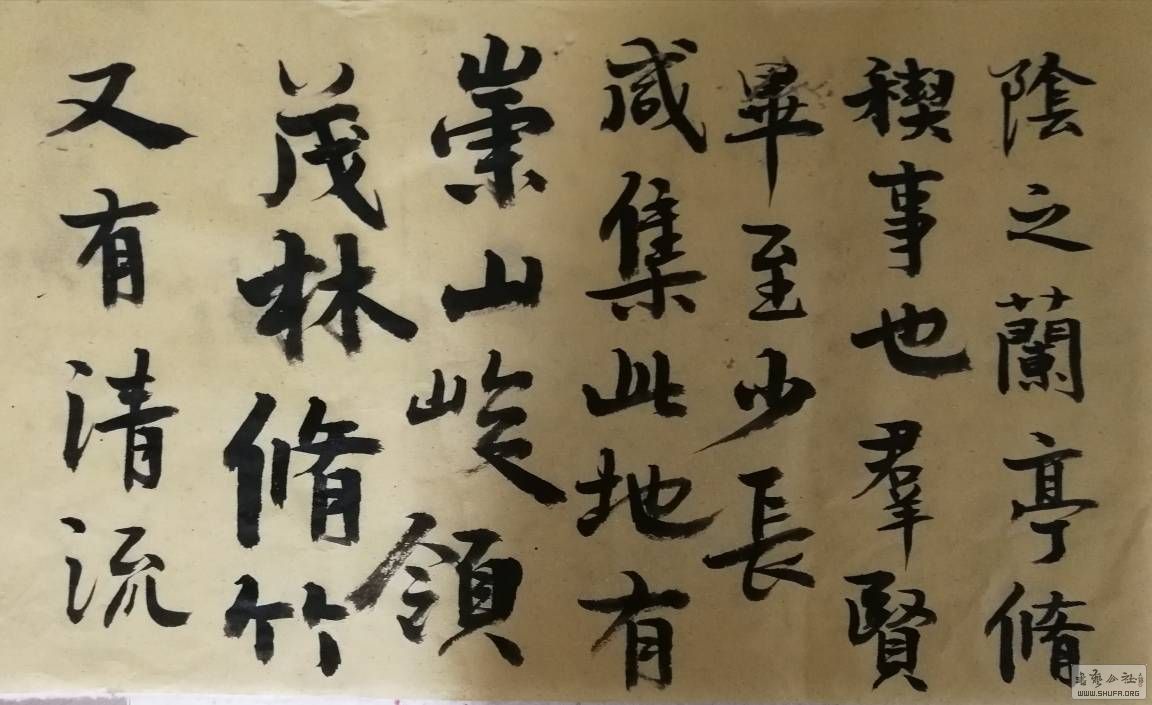 陰之蘭亭脩
稧事也羣賢
畢至少長
咸集此地有
崇山峻領
茂林脩竹
又有清流
书藝公社
WWW.SHUFA.ORG